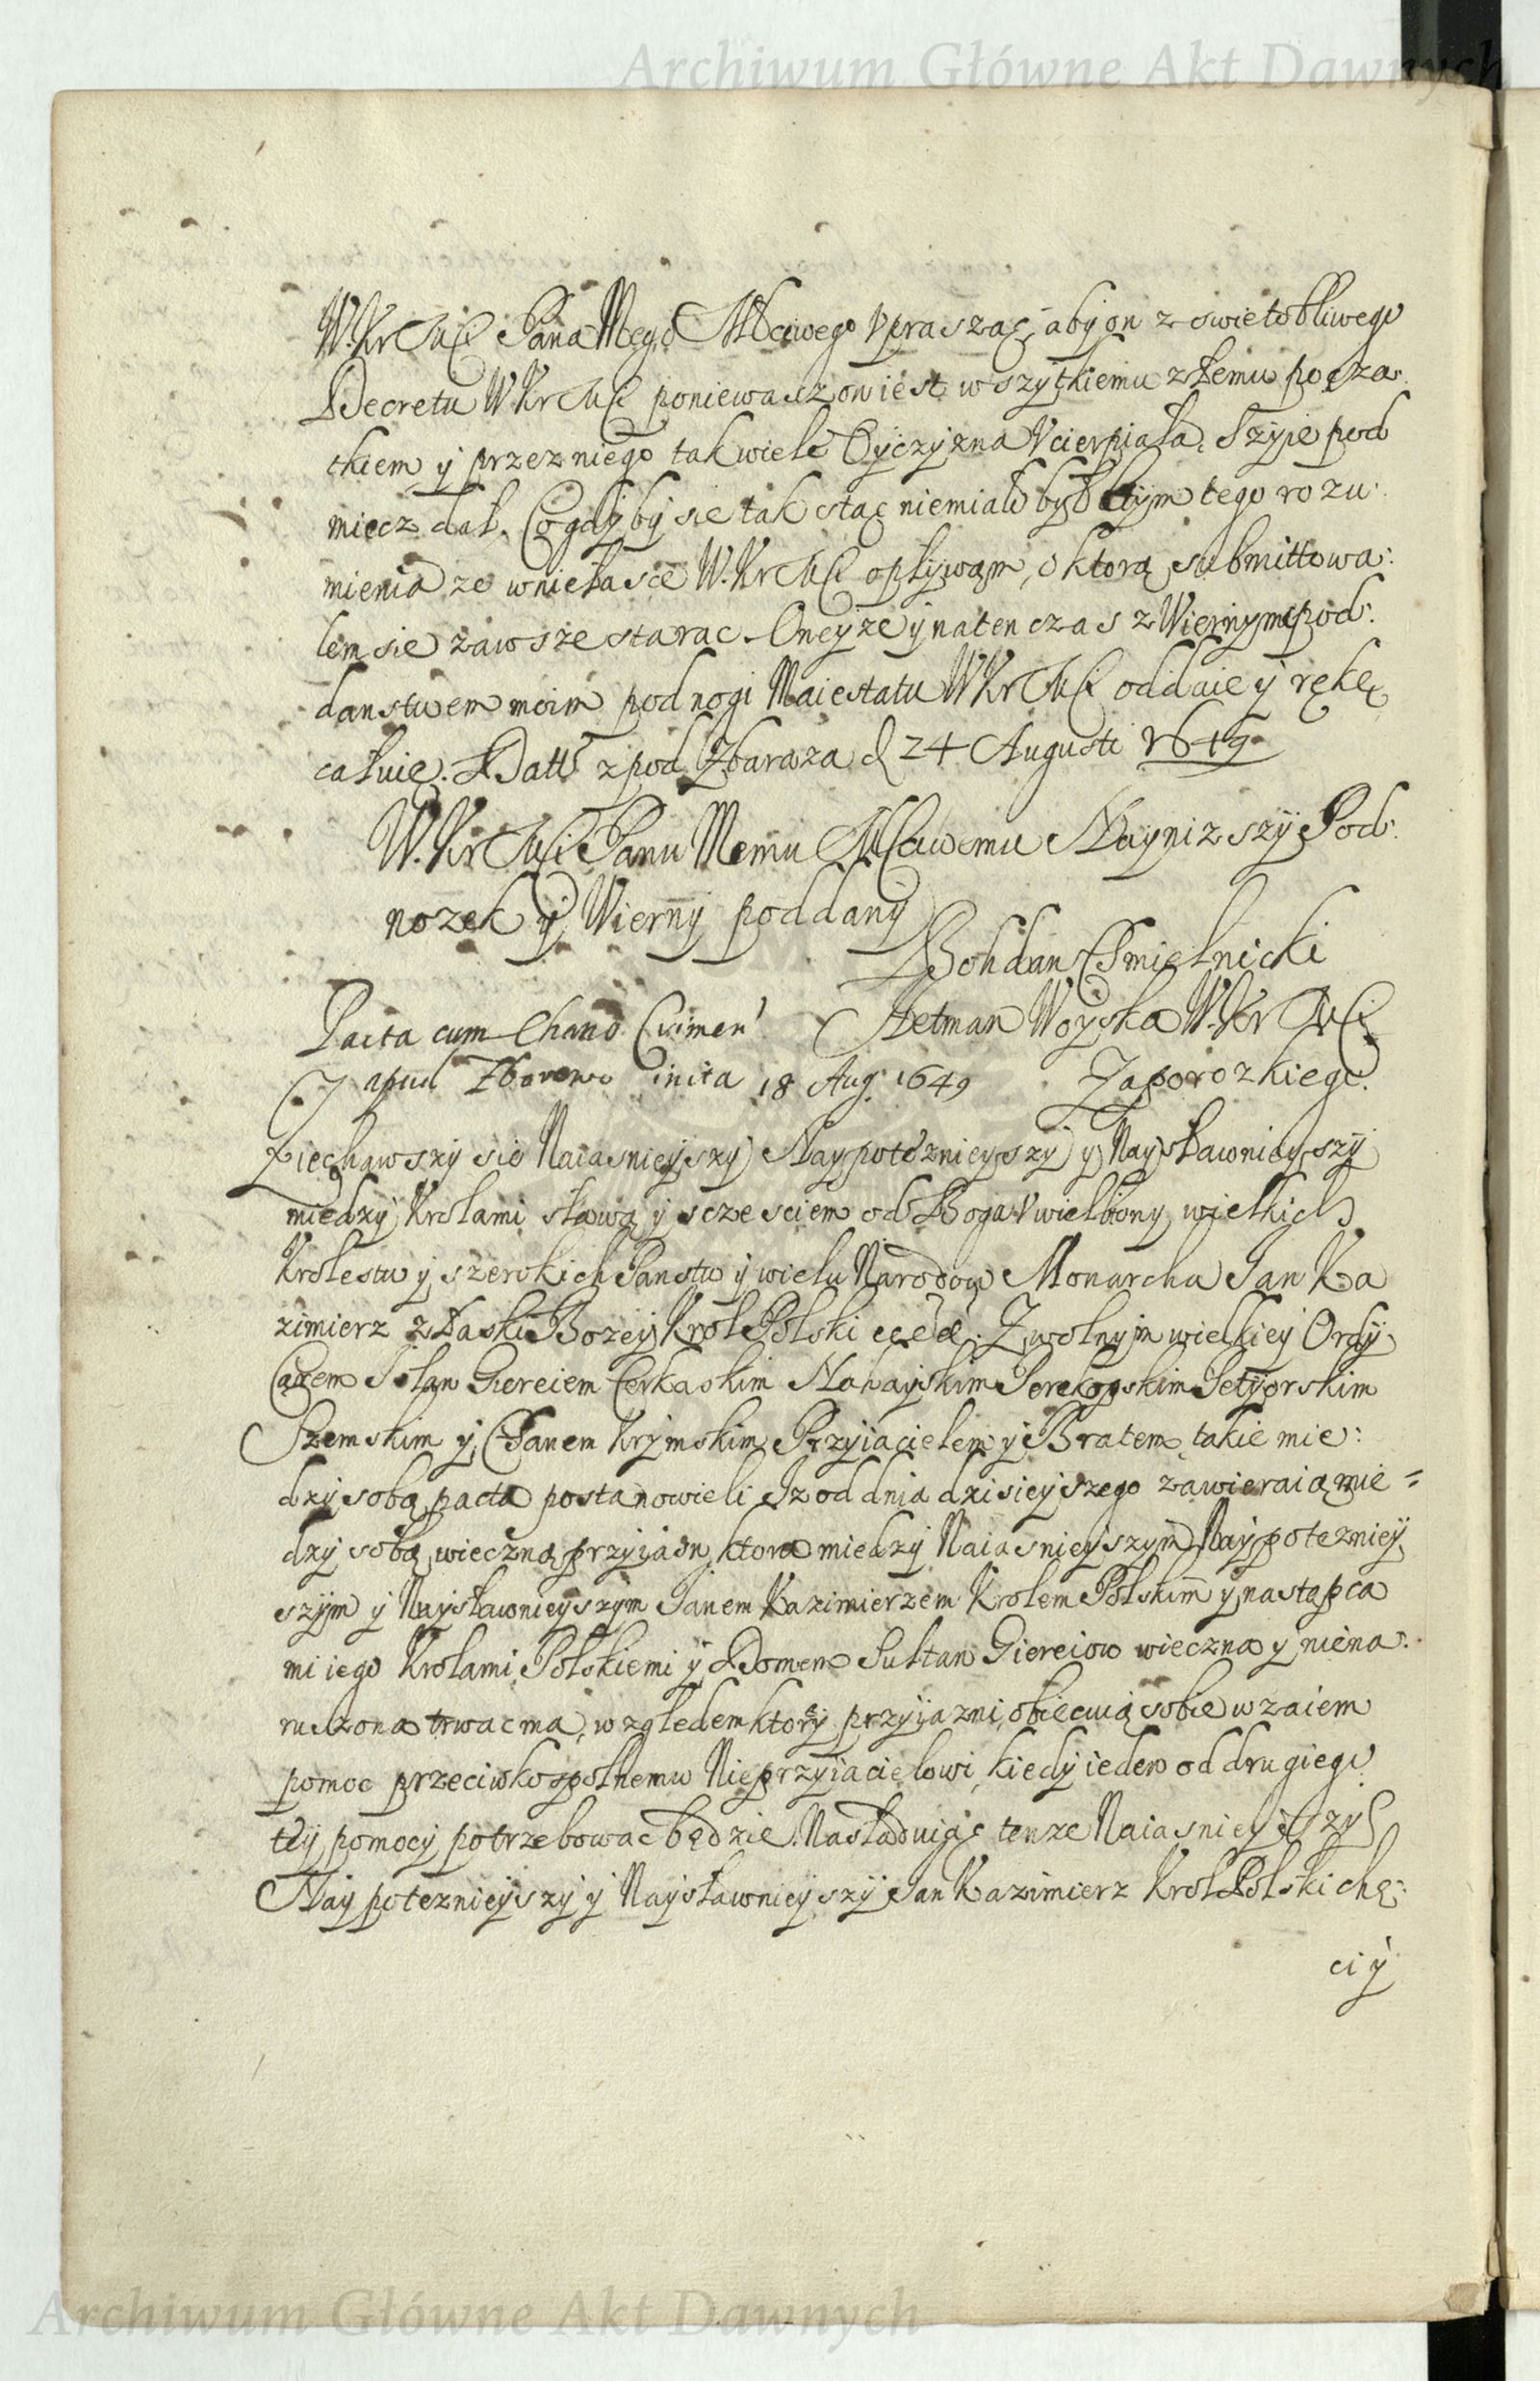 Archiwum Główne Akt Dawnych
W. Kr Mći Pana Mego Młćiwego Vpraszaç, aby on z swietobliwego
Decretu W Kr Mći poniewasz on iest wszytkiemu złemu począ:
tkiem y przez niego tak wiele Oyczyzna Vcierpiała. Szyie pod
miecz dał. Co gdyby sie tak stac niemiało był bym tego rozu:
mienia ze w niełasce W. Kr Mći opływam, o ktorą submittowa:
łem sie zawsze starac. Oneyze y naten czas z Wiernym pod:
danstwem moim pod nogi Maiestatu W Kr Mći oddaie y rękę
całuię. Datt z pod Zbaraza d 24 Augusti 1649
W. Kr Mći Panu Memu Mćiwemu Naynizszy Pod:
nozek y Wierny poddany
Bohdan Chmielnicki
Hetman Woyska W. Kr Mći
Zaporozkiego.
Pacta cum Chano Crimen'
apud Zborow inita 18 Aug: 1649
Ziechawszy sie Naiasnieyszy Naypoteznieyszy y Naysławnieyszy
miedzy Krolami sławą y sczesciem od Boga Vwielbiony wielkich
Krolestw y szerokich Panstw y wielu Narodow Monarcha Jan Ka
zimierz z Łaski Bozey Krol Polski Z wolnym wielkiey Ordy
Carzem Isłan Giereiem Cerkaskim Nohayskim Perekopskim Petyorskim
y Chanem Krymskim Przyiacielem y Bratem takie mie:
dzy sobą pacta postanowieli Iz od dnia dzisieyszego zawieraią mie=
dzy sobą wieczną przyiasn ktora miedzy Naiasnieyszym Naypotezniey
szym y Naysławnieyszym Janem Kazimierzem Krolem Polskim y nastąpca
mi iego Krolami Polskiemi y Domem Sultan Giereiow wieczna y niena:
ruszona trwac ma, wzgledem ktory przyiazni obiecuią sobie wzaiem
pomoc przeciwko spolnemu Nieprzyiacielowi kiedy ieden od drugiego
tey pomocy potrzebowac będzie. Nasladuiąc tenze Naiasnieyszy
Naypoteznieyszy y Naysławnieyszy Jan Kazimierz Krol Polski chę:
ci y
Archiwum Główne Akt Dawnych